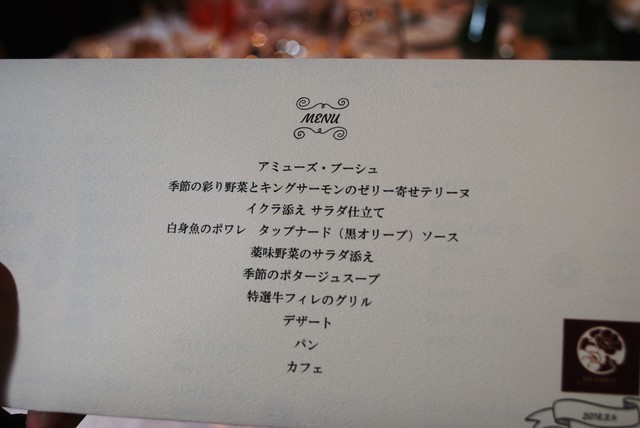 MENU
アミューズ・ブーシュ
季節の彩り野菜とキングサーモンのゼリー寄せテリーヌ
イクラ添え サラダ仕立て
白身魚のポワレ　タップナード（黒オリーブ）ソース
薬味野菜のサラダ添え
季節のポタージュスープ
特選牛フィレのグリル
デザート
パン
カフェ